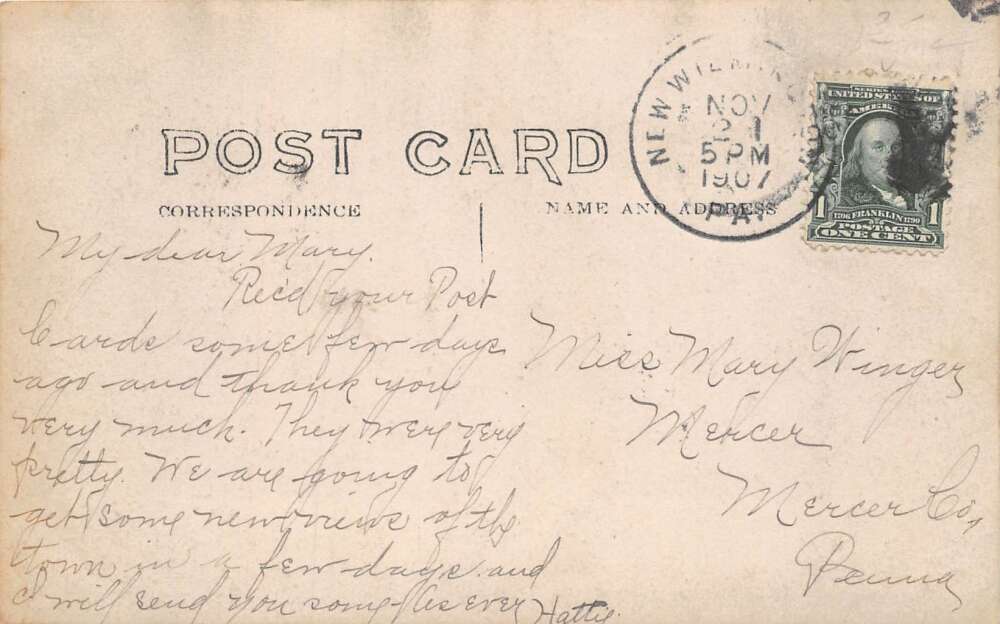 POST CARD
CORRESPONDENCE
NAME AND ADDRESS
NEW WILM
NOV
21
5 PM
1907
PA.
SERIES 1902
UNITED STATES OF
AMERICA
1706 FRANKLIN 1790
1 1
POSTAGE
ONE CENT
My dear Mary.
Rec'd your Post
Cards some few days
ago and thank you
very much. They were very
pretty. We are going to
get some new views of the
town in a few days and
I will send you some. As ever Hattie.
Miss Mary Winger
Mercer
Mercer Co,
Penna